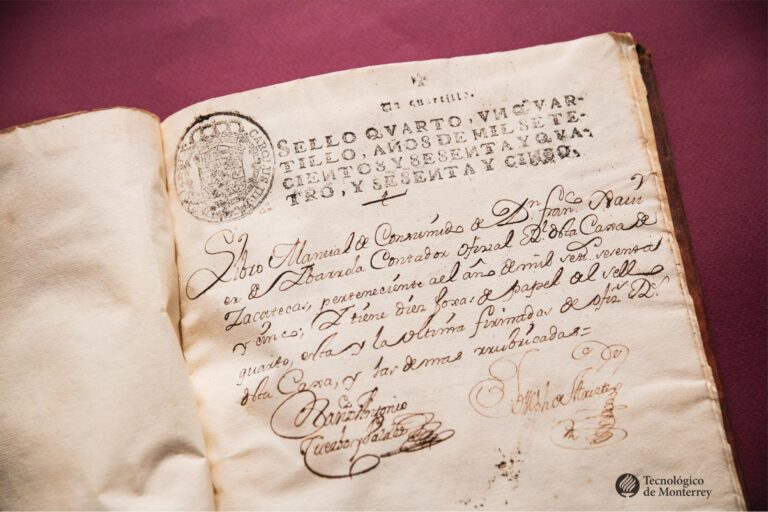 Un quartillo.
SELLO QVARTO, VN QVAR-
TILLO, AÑOS DE MIL SETE-
CIENTOS Y SESENTA Y QVA-
TRO, Y SESENTA Y CINCO.
Libro Manual de Consumido de Dn. franco. Xavi
er de Ibarrola Contador Oficial Rl. dela Caxa de
Zacatecas, perteneciente ael año de mil setts. sesenta
y cinco; Y tiene diez foxas de papel del sello
quarto, esta y la vltima firmadas de ofizs. Rs.
dela Caxa, y las demas rrubricadas=
Antonio
Tecnológico
de Monterrey